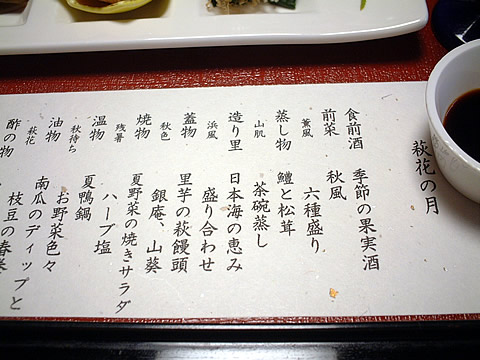 萩花の月
食前酒 季節の果実酒
前菜 秋風
薫風 六種盛り
蒸し物 鱧と松茸
山肌 茶碗蒸し
造り里 日本海の恵み
浜風 盛り合わせ
蓋物 里芋の萩饅頭
秋色 銀庵、山葵
焼物 夏野菜の焼きサラダ
残暑 ハーブ塩
温物 夏鴨鍋
秋待ち お野菜色々
油物 南瓜のディップと
萩花 枝豆の春巻
酢の物